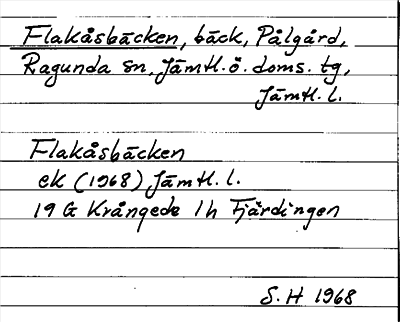 Flakåsbäcken, bäck, Pålgård,
Ragunda sn, Jämtl. ö. doms. tg,
Jämtl. l.
Flakåsbäcken
ek (1968) Jämtl. l.
19 G Krångede 1h Fjärdingen
S. H 1968